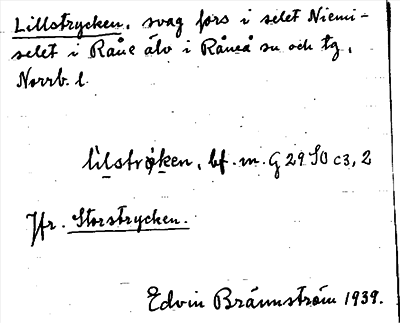 Lillstrycken, svag fors i selet Niemi-
selet i Råne älv i Råneå sn och tg,
Norrb. l.
lilstrøken, bf. m. G 29 SO c3, 2
Jfr. Storstrycken.
Edvin Brännström 1939.